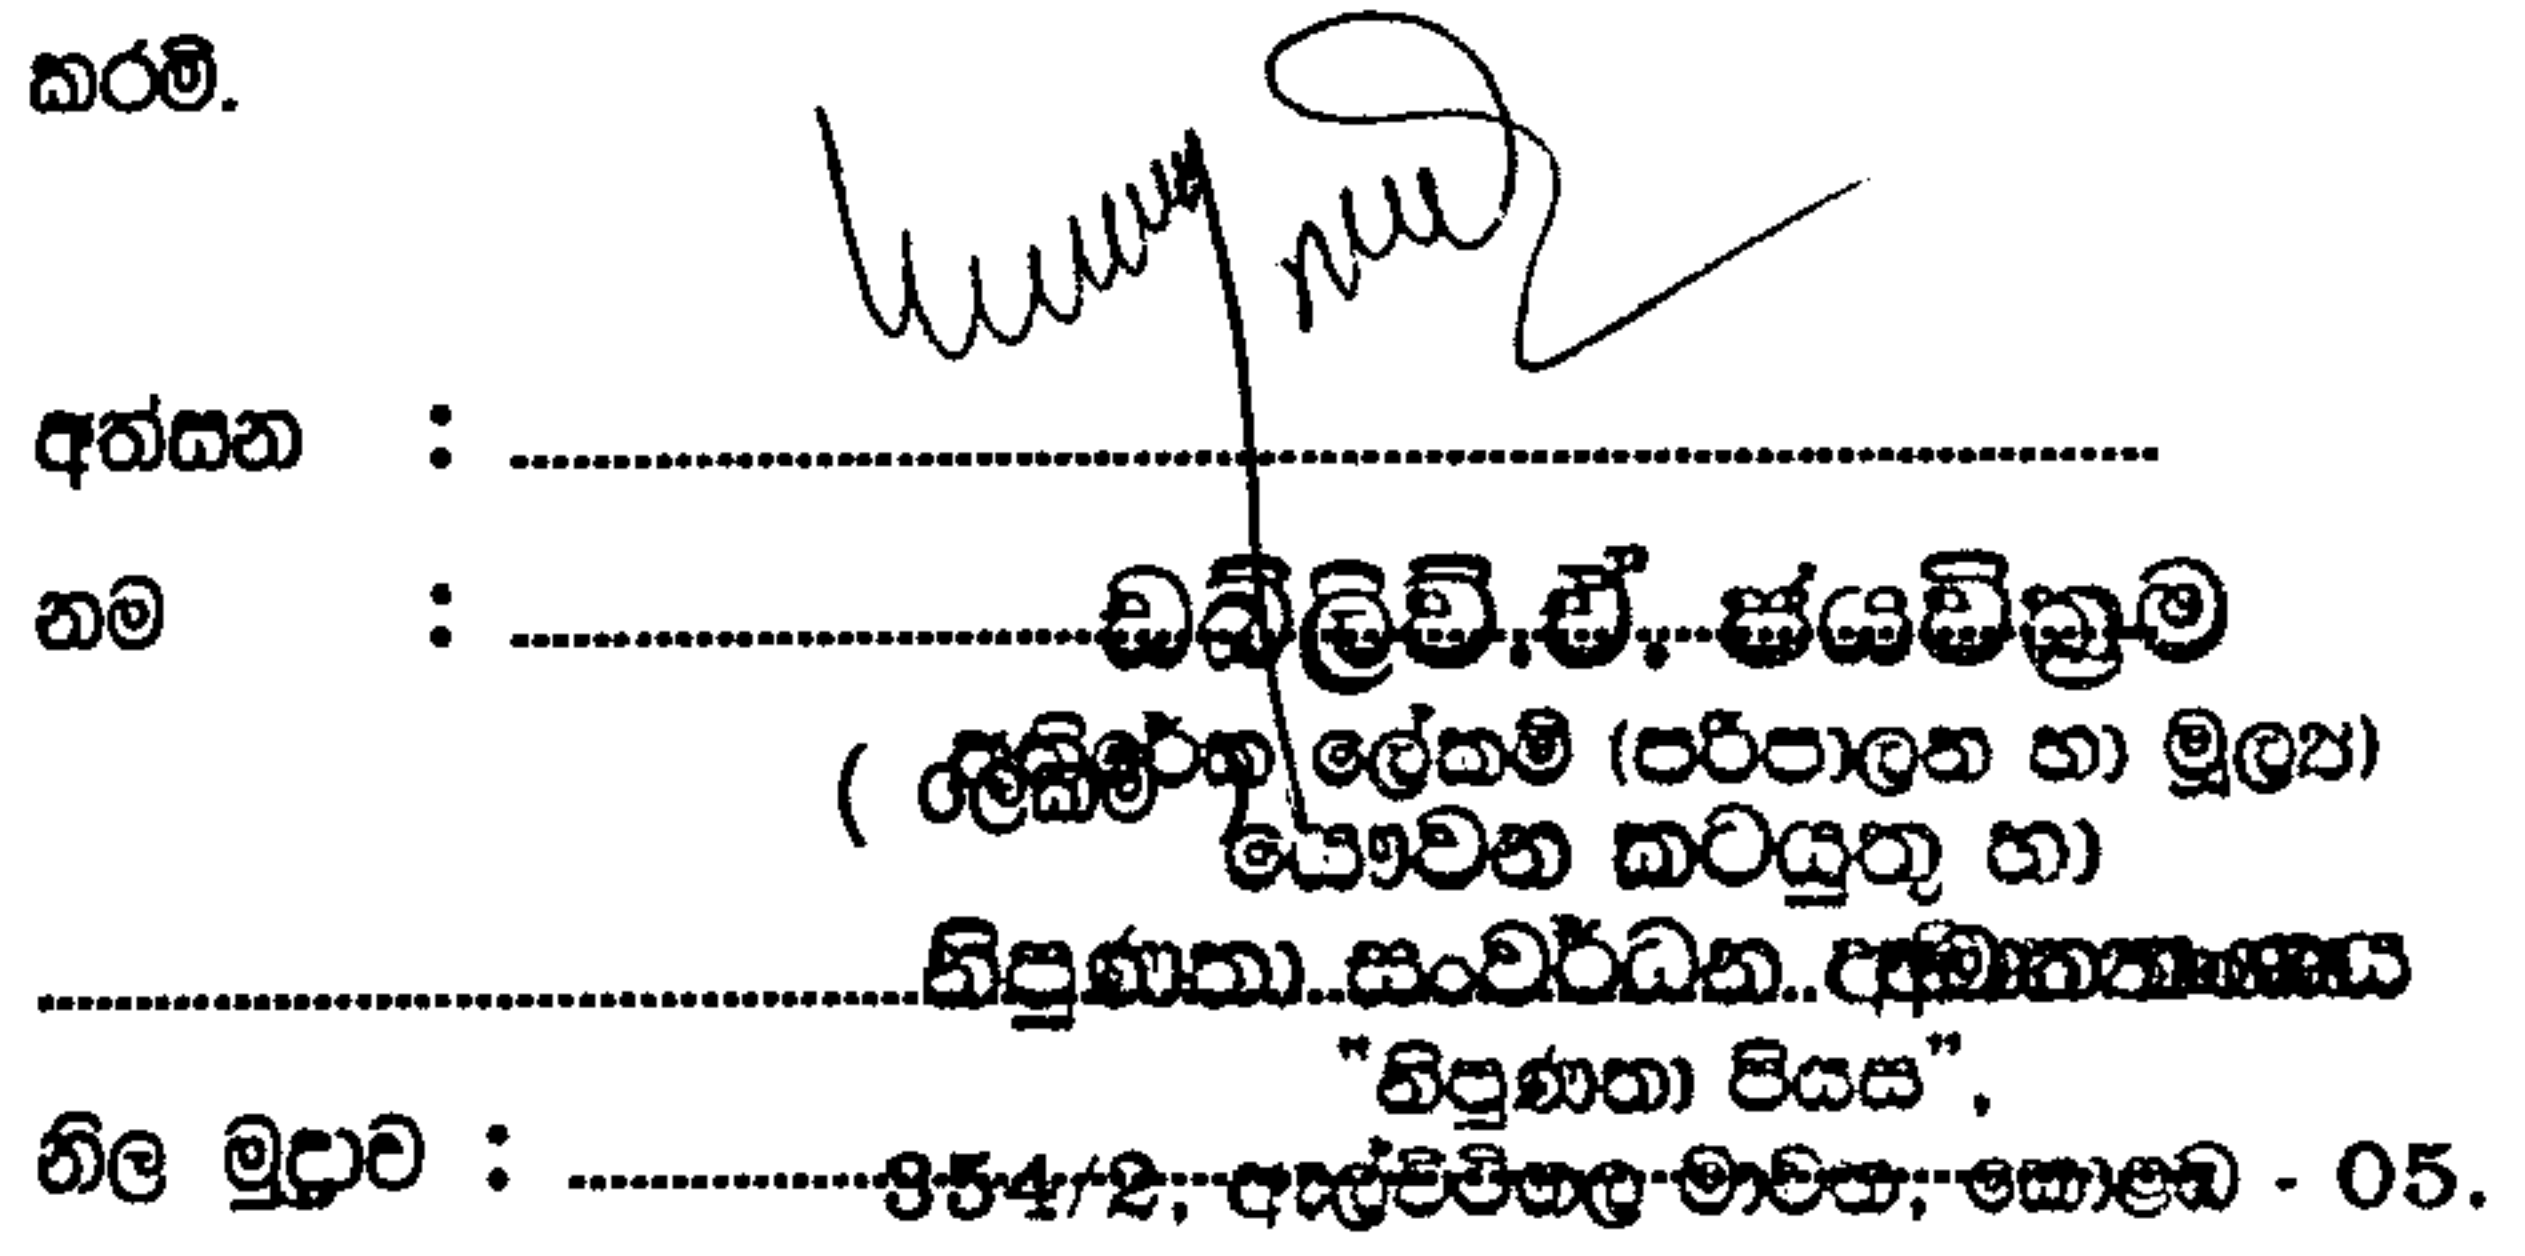 කරමි.
අත්සන :
නම : ඩබ්ලිව්.ඒ. ජයවික්‍රම
අතිරේක ලේකම් (පරිපාලන හා මූල්‍ය)
( ලේකම් )
යෞවන කටයුතු හා
නිපුණතා සංවර්ධන අමාත්‍යාංශය
"නිපුණතා පියස",
නිල මුද්‍රාව : 354/2, ඇල්විටිගල මාවත, කොළඹ - 05.